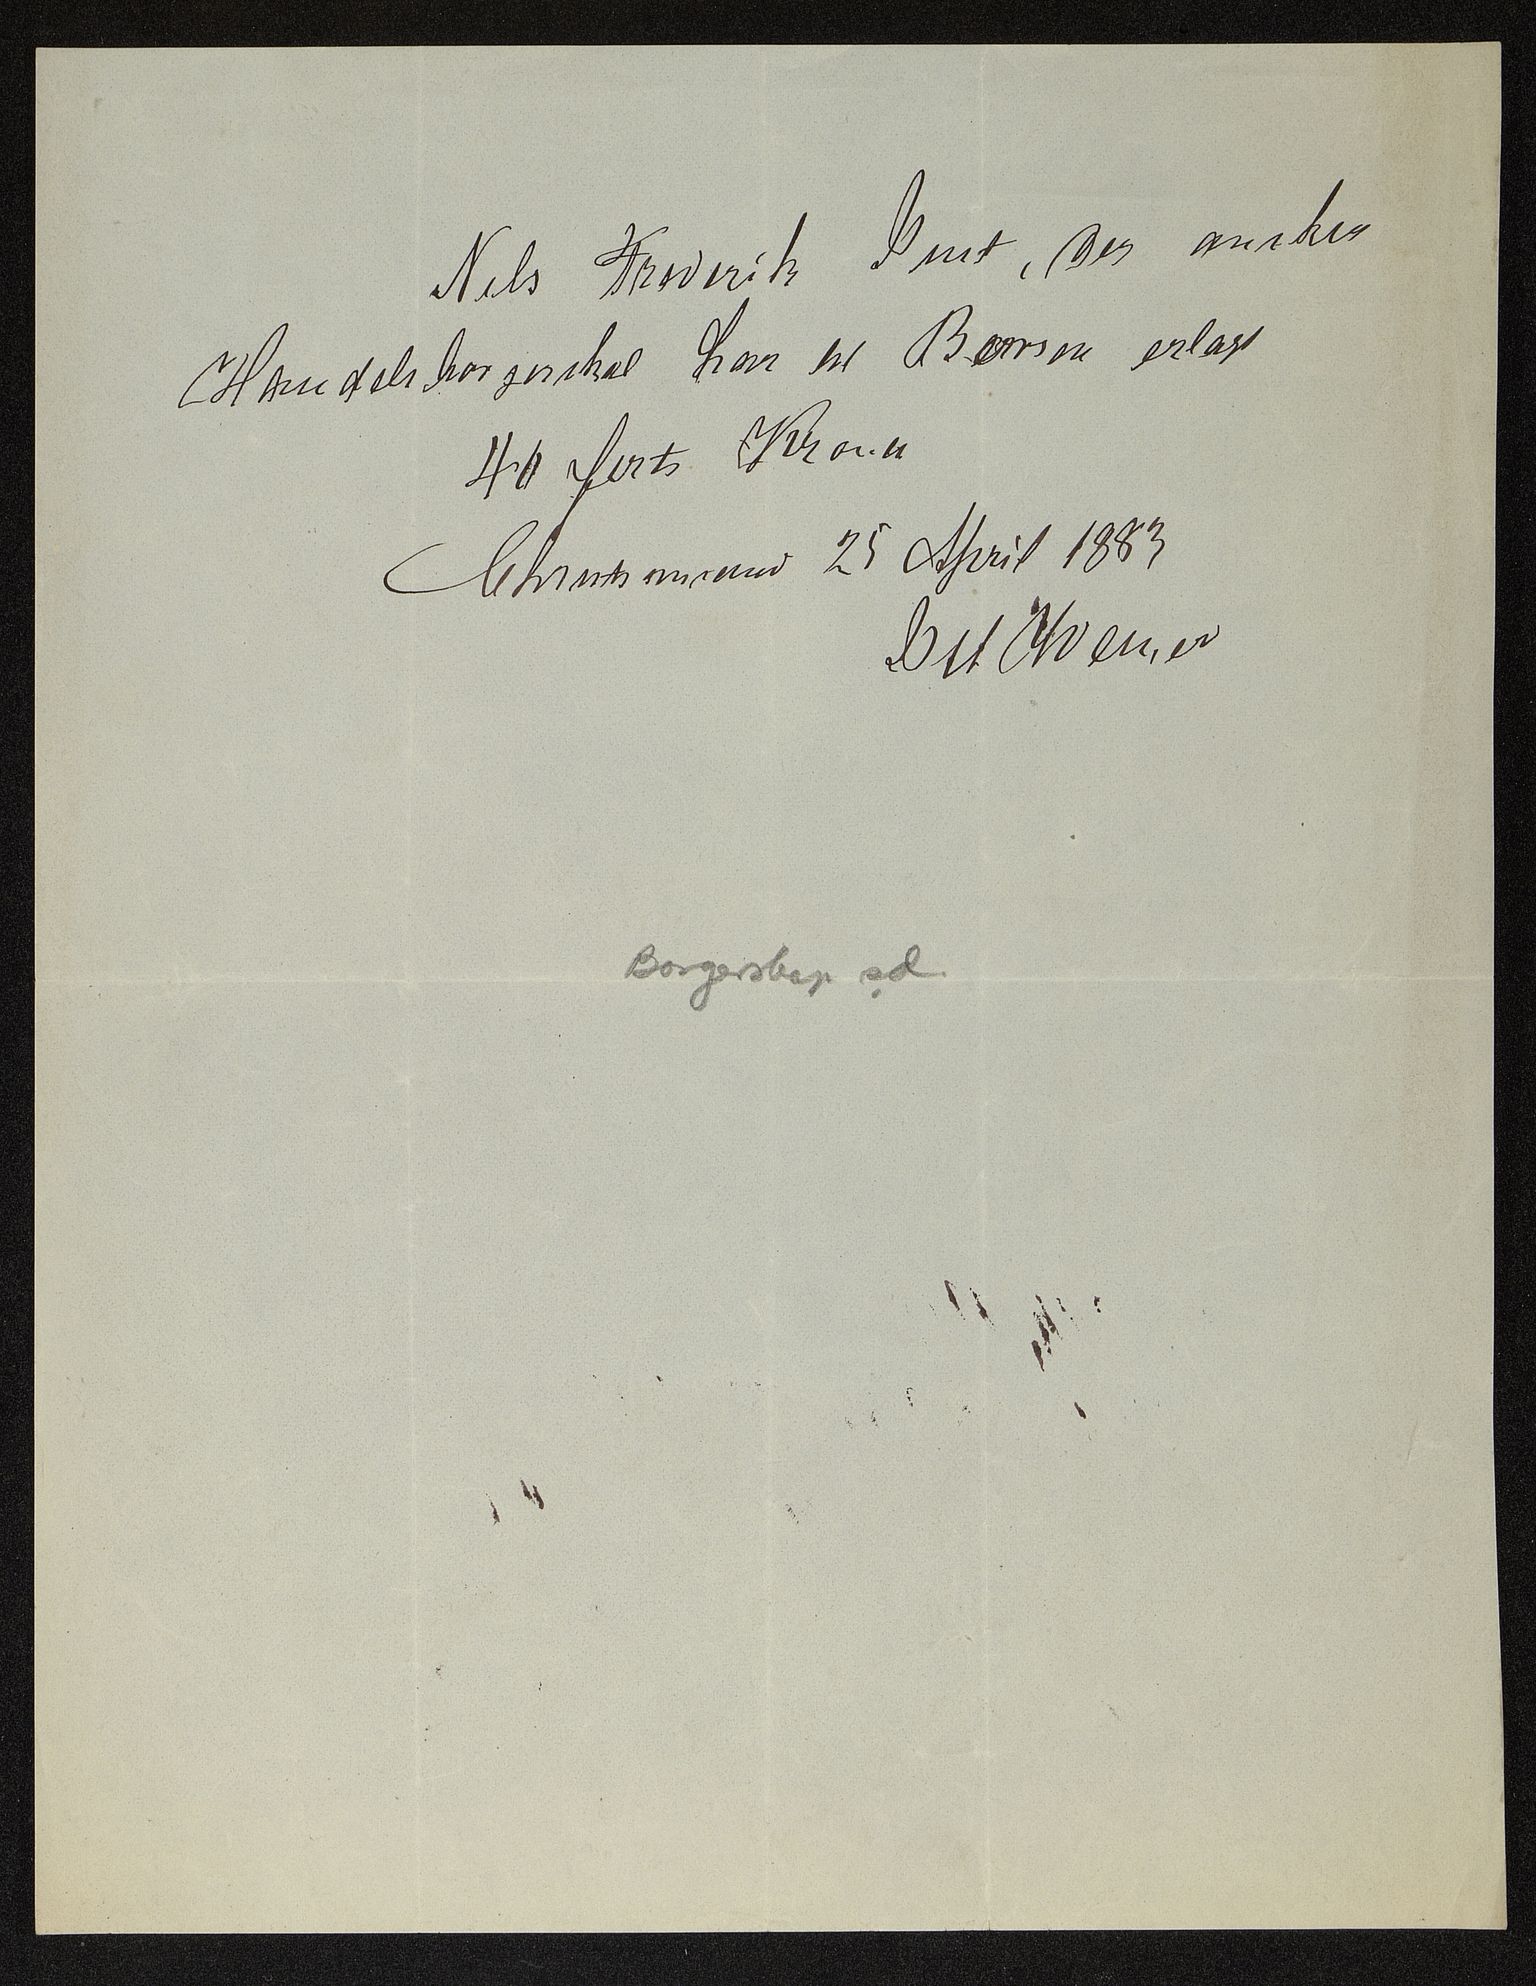 Nels Frederik Smit, der ønsker
Handelsborgerskab har til Børsen erlagt
40 førti Kroner
Christianssand 25 April 1883
Borgerskap sd.